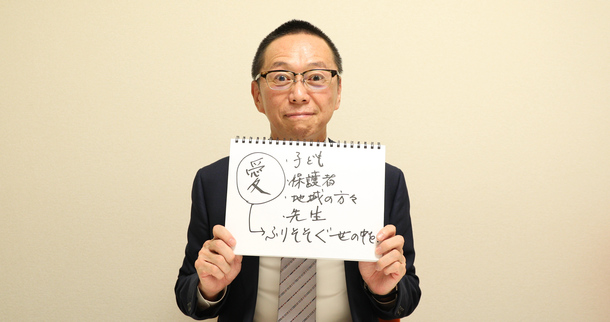 愛
・子ども
・保護者
・地域の方々
・先生
→ふりそそぐ世の中を